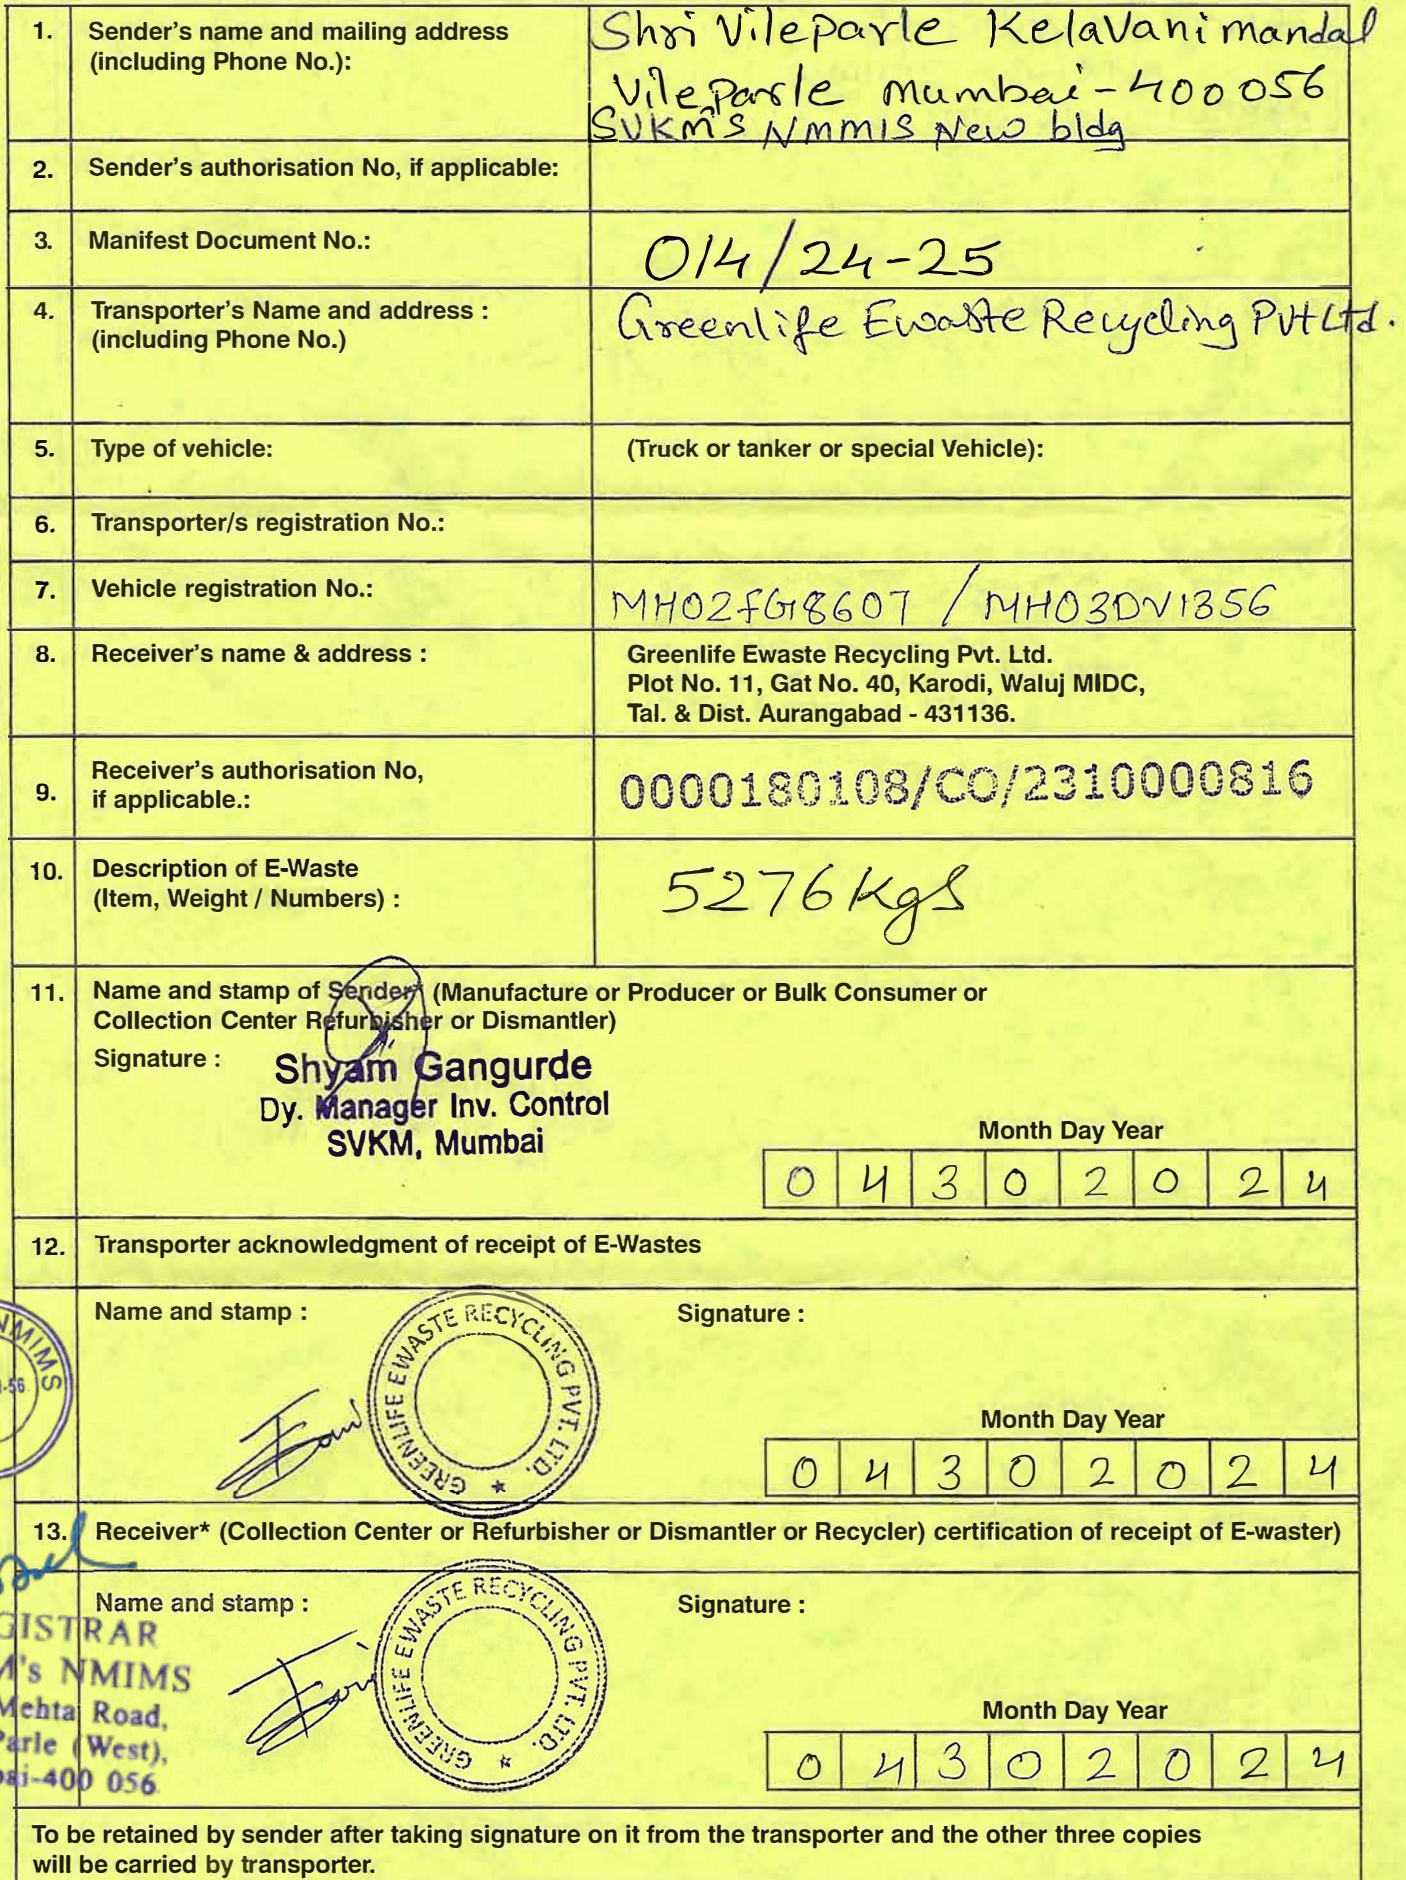 1. Sender's name and mailing address
(including Phone No.):
Shri Vileparle Kelavani mandal
Vileparle Mumbai - 400056
SVKM's NMMIS New bldg
2. Sender's authorisation No, if applicable:
3. Manifest Document No.: 014/24-25
4. Transporter's Name and address :
(including Phone No.)
Greenlife Ewaste Recycling Pvt Ltd.
5. Type of vehicle: (Truck or tanker or special Vehicle):
6. Transporter/s registration No.:
7. Vehicle registration No.: MH02FG8607 / MH03DV1356
8. Receiver's name & address :
Greenlife Ewaste Recycling Pvt. Ltd.
Plot No. 11, Gat No. 40, Karodi, Waluj MIDC,
Tal. & Dist. Aurangabad - 431136.
9. Receiver's authorisation No,
if applicable.:
0000180108/CO/2310000816
10. Description of E-Waste
(Item, Weight / Numbers) :
5276 Kgs
11. Name and stamp of Sender* (Manufacture or Producer or Bulk Consumer or
Collection Center Refurbisher or Dismantler)
Signature :
Shyam Gangurde
Dy. Manager Inv. Control
SVKM, Mumbai
Month Day Year
0 4 3 0 2 0 2 4
12. Transporter acknowledgment of receipt of E-Wastes
Name and stamp : Signature :
GREENLIFE EWASTE RECYCLING PVT. LTD.
NMIMS
-56
Month Day Year
0 4 3 0 2 0 2 4
13. Receiver* (Collection Center or Refurbisher or Dismantler or Recycler) certification of receipt of E-waster)
Name and stamp : Signature :
GREENLIFE EWASTE RECYCLING PVT. LTD.
GISTRAR
M's NMIMS
Mehta Road,
Parle (West),
bai-400 056
Month Day Year
0 4 3 0 2 0 2 4
To be retained by sender after taking signature on it from the transporter and the other three copies
will be carried by transporter.